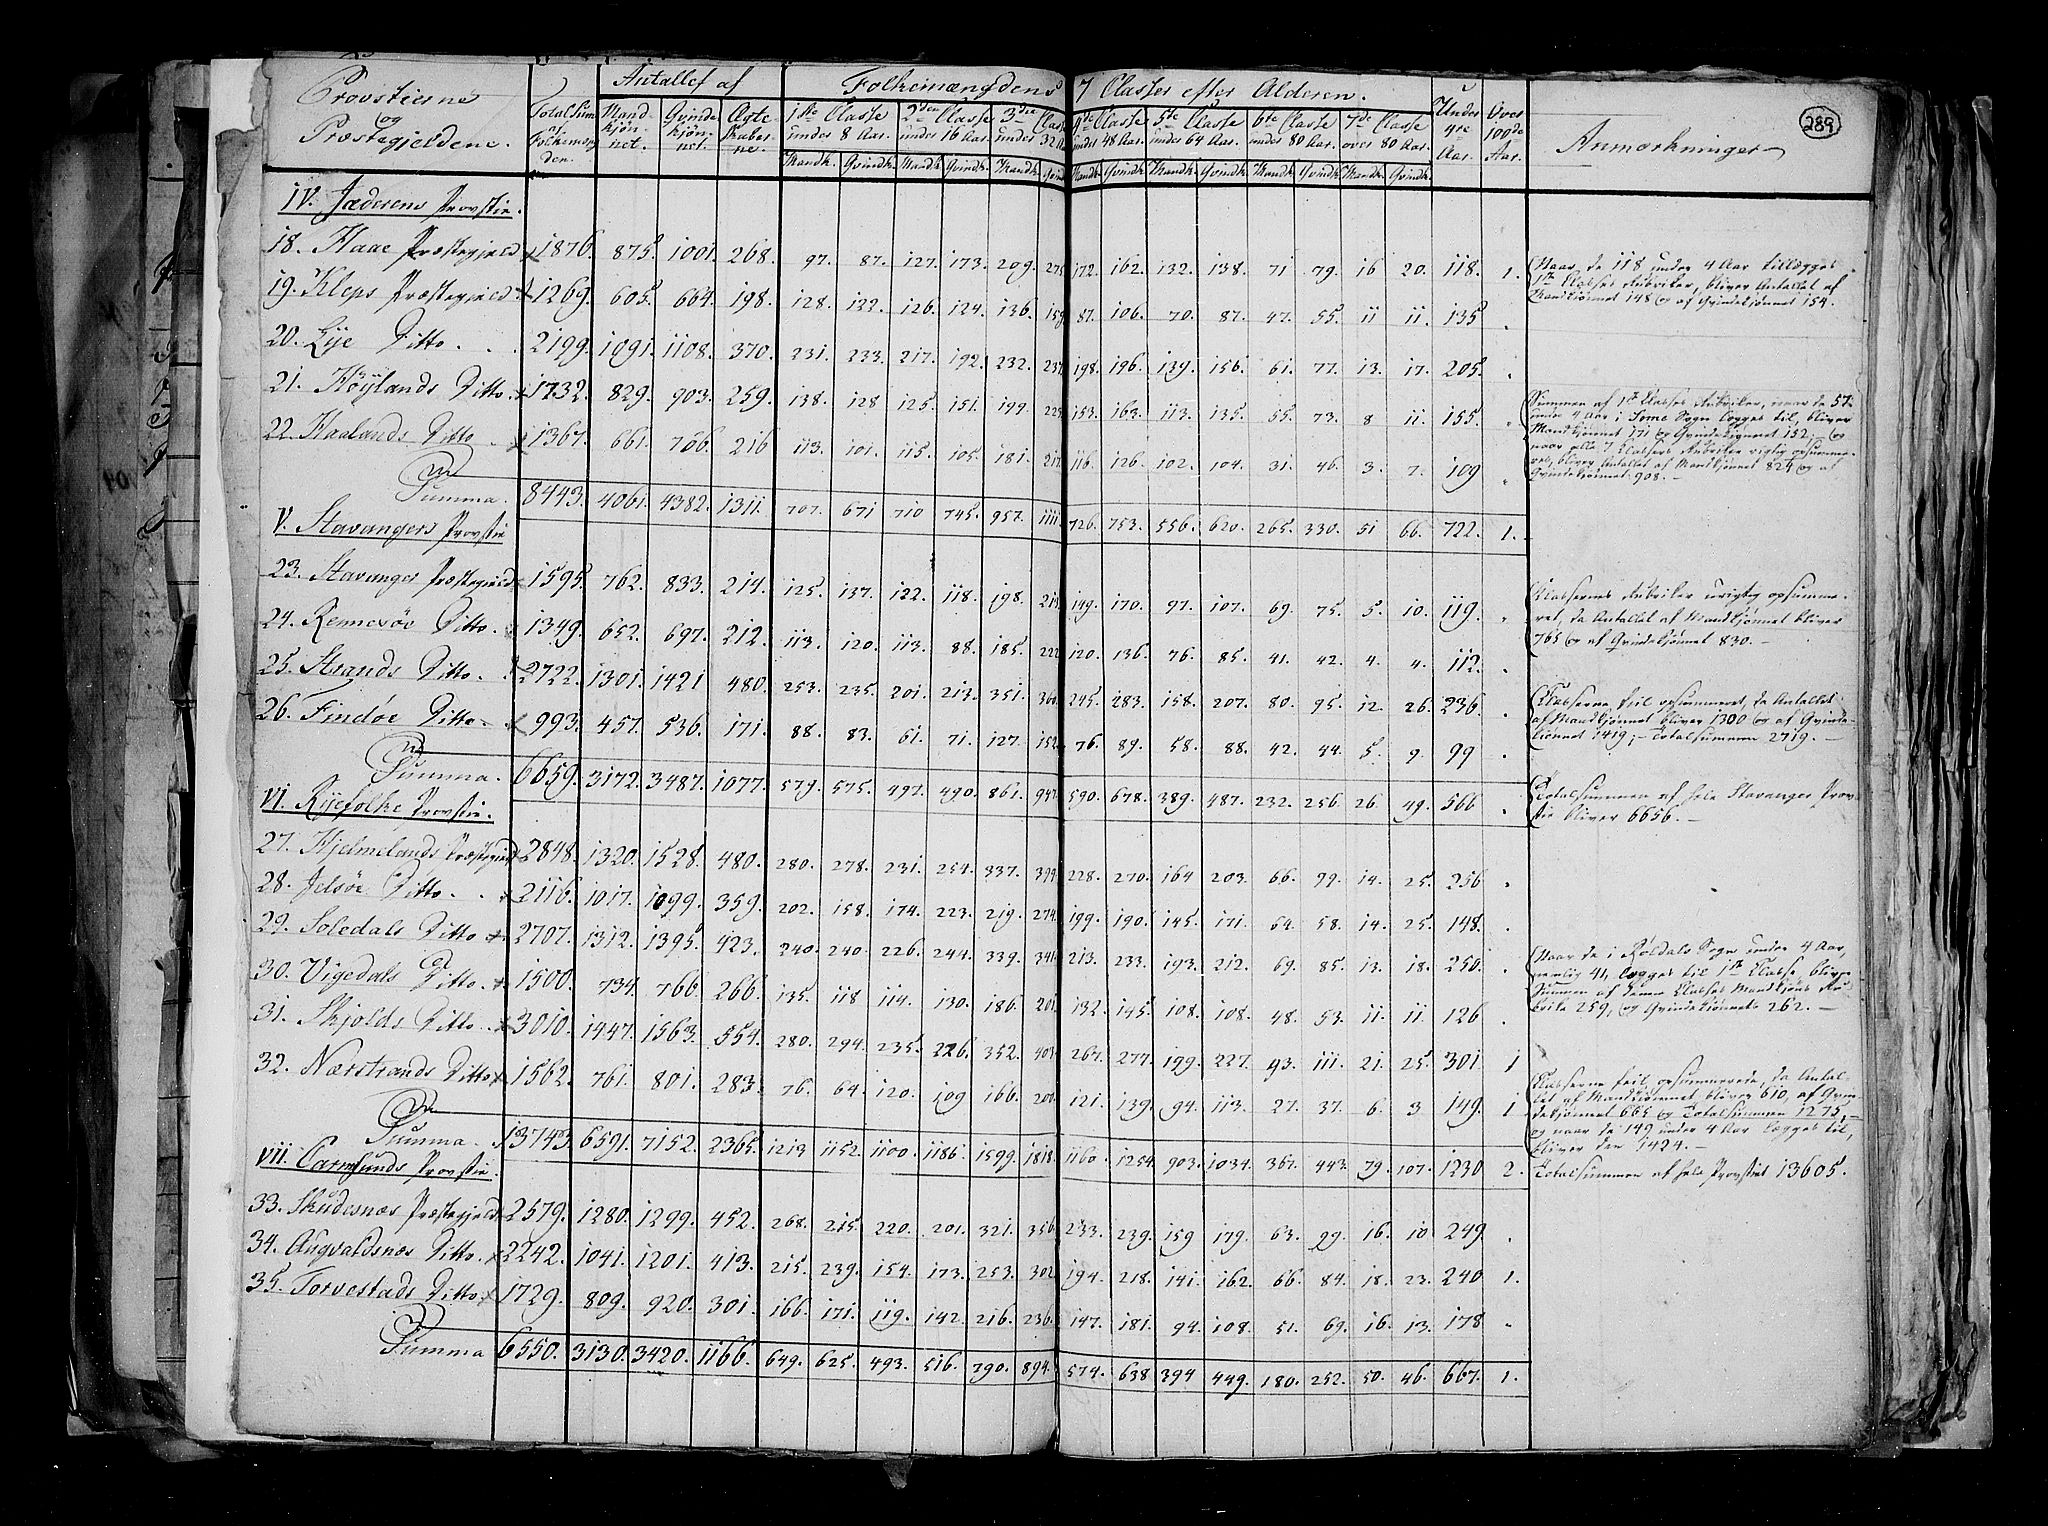 289
Provstierne og Præstegieldene. | Total Sum af Folkemængden. | Antallet af Mandkjønnet. | Qvindekjønnet. | Ægteskaberne. | Folkemængdens 7 Classer efter Alderen. | Under 4re Aar. | Over 100de Aar. | Anmærkninger
1ste Classe under 8 Aar. | 2den Classe under 16 Aar. | 3die Classe under 32 Aar | 4de Classe under 48 Aar. | 5te Classe under 64 Aar. | 6te Classe under 80 Aar. | 7de Classe over 80 Aar.
Mandk. Qvindk. Mandk. Qvindk. Mandk. Qvind Mandk. Qvindk. Mandk. Qvindk. Mandk. Qvindk. Mandk. Qvindk.
IV. Jæderens Provstie.
18. Haae Præstegield 1876. 875. 1001. 268. 97. 87. 127. 173. 209. 275 172. 162. 132. 138. 71 79. 16 20. 118. 1.
Naar de 118 under 4 Aar tillægges
1ste Classes Rubriker, bliver Antallet af
Mandkjønnet 148 og af Qvindekjønnet 154.
19. Kleps Præstegield 1269. 605. 664. 198. 128. 122. 126. 124. 136. 159 87. 106. 70. 87. 47. 55. 11 11. 135 .
20. Lye Ditto . . 2199. 1091. 1108. 370. 231. 233. 217. 192. 232. 237 198. 196. 139. 156. 61. 77. 13. 17. 205. .
21. Höylands Ditto. 1732. 829. 903. 259. 138. 128 125. 151. 199. 229 153. 163. 113. 135. 55. 73. 8 11. 155. .
Summen af 1ste Classes Rubriker, naar de 57
under 4 Aar i Sømе Sogn legges til, bliver
Mandkjønnet 171 og Qvindekjønnet 152, og
naar alle 7 Classers Rubriker rigtig opsumme-
res, bliver Antallet af Mandkjønnet 824 og af
Qvindekjønnet 908. -
22. Haalands Ditto . 1367. 661. 706. 216 113. 101. 115. 105. 181. 217 116. 126. 102. 104. 31. 46. 3. 7. 109 .
Summa. 8443. 4061. 4382. 1311. 707. 671 710 745. 957. 1111 726. 753. 556. 620. 265. 330. 51 66. 722. 1.
V. Stavangers Provstie
23. Stavanger Præstegield 1595. 762. 833. 214. 125. 137. 122. 118. 198. 219 149. 170. 97. 107. 69. 75. 5. 10. 119. .
Classernes Rubriker urigtig opsumme-
ret, da Antallet af Mandkjønnet bliver
765 og af Qvindekjønnet 830. -
24. Rennesöe Ditto. 1349. 652. 697. 212. 113. 120. 113. 88. 185. 222 120. 136. 76. 85. 41. 42. 4. 4. 112. .
25. Strands Ditto. 2722. 1301. 1421 480. 253. 235. 201. 213. 351. 360 245. 283. 158. 207. 80. 95. 12. 26. 236. .
Classerne feil opsummeret, da Antallet
af Mandkjønnet bliver 1300 og af Qvinde-
kjønnet 1419; - Totalsummen 2719. -
26. Findöe Ditto. 993. 457. 536. 171. 88. 83. 61. 71. 127. 152 76. 89. 58. 88. 42. 44. 5. 9. 99 .
Summa. 6659. 3172. 3487. 1077. 579. 575. 497. 490. 861. 947 590. 678. 389. 487. 232. 256. 26. 49. 566 .
Totalsummen af hele Stavanger Prov-
stie bliver 6656. -
VI. Ryefolke Provstie.
27. Hjelmelands Præstegield 2848. 1320. 1528. 480. 280. 278. 231. 254. 337. 399 228. 270. 164 203. 66. 99. 14. 25. 256 .
28. Jelsöe Ditto. . 2116. 1017. 1099. 359. 202. 158. 174. 223. 219. 274 199. 190. 145. 171. 64. 58. 14. 25. 148. .
29. Soledals Ditto 2707. 1312. 1395. 423. 240. 240. 226. 244. 339. 341 213. 233. 193. 212. 69. 85. 13. 18. 250. .
Naar de i Röldals Sogn under 4 Aar,
nemlig 41, legges til 1ste Classe, bliver
Summen af denne Classes Mandkjøns Ru-
brik 259, og Qvindekjønnets 262. -
30. Vigedals Ditto. 1500. 734. 766. 266. 135. 118 114. 130. 186. 201 132. 145. 108. 108. 48. 53. 11. 11. 126 .
31. Skjolds Ditto. 3010. 1447. 1563. 554. 280. 294. 235. 226. 352. 403 267. 277. 199. 227. 93. 111. 21. 25. 301 1
32. Nærstrands Ditto 1562. 761. 801. 283. 76. 64. 120. 109 166. 200 121. 139. 94. 113. 27. 37. 6. 3 149. 1
Classerne feil opsummerede, da Antal-
let af Mandkjønnet bliver 610, af Qvin-
dekjønnet 665 og Totalsummen 1275, -
og naar de 149 under 4 Aar legges til,
bliver den 1424. -
Summa. 13743. 6591. 7152. 2365. 1213 1152. 1100. 1186. 1599. 1818 1160. 1254. 903. 1034. 367. 443. 79. 107. 1230 2.
Totalsummen af hele Provstiet 13605.
VII. Carmsunds Provstie.
33. Skudesnæs Præstegield 2579. 1280. 1299. 452. 268. 215. 220. 201. 321. 356 233. 239. 159 179. 63. 99. 16. 10 249. .
34. Augvaldsnæs Ditto. 2242. 1041. 1201. 413. 215. 239. 154. 173. 253. 302 194. 218. 141. 162. 66. 84. 18. 23. 240 1.
35. Torvestads Ditto. 1729. 809. 920. 301. 166. 171. 119. 142. 216. 236. 147. 181. 94. 108. 51. 69. 16. 13. 178 .
Summa 6550. 3130. 3420. 1166. 649. 625. 493. 516. 790. 894. 574. 638 394 449. 180. 252. 50. 46. 667. 1.